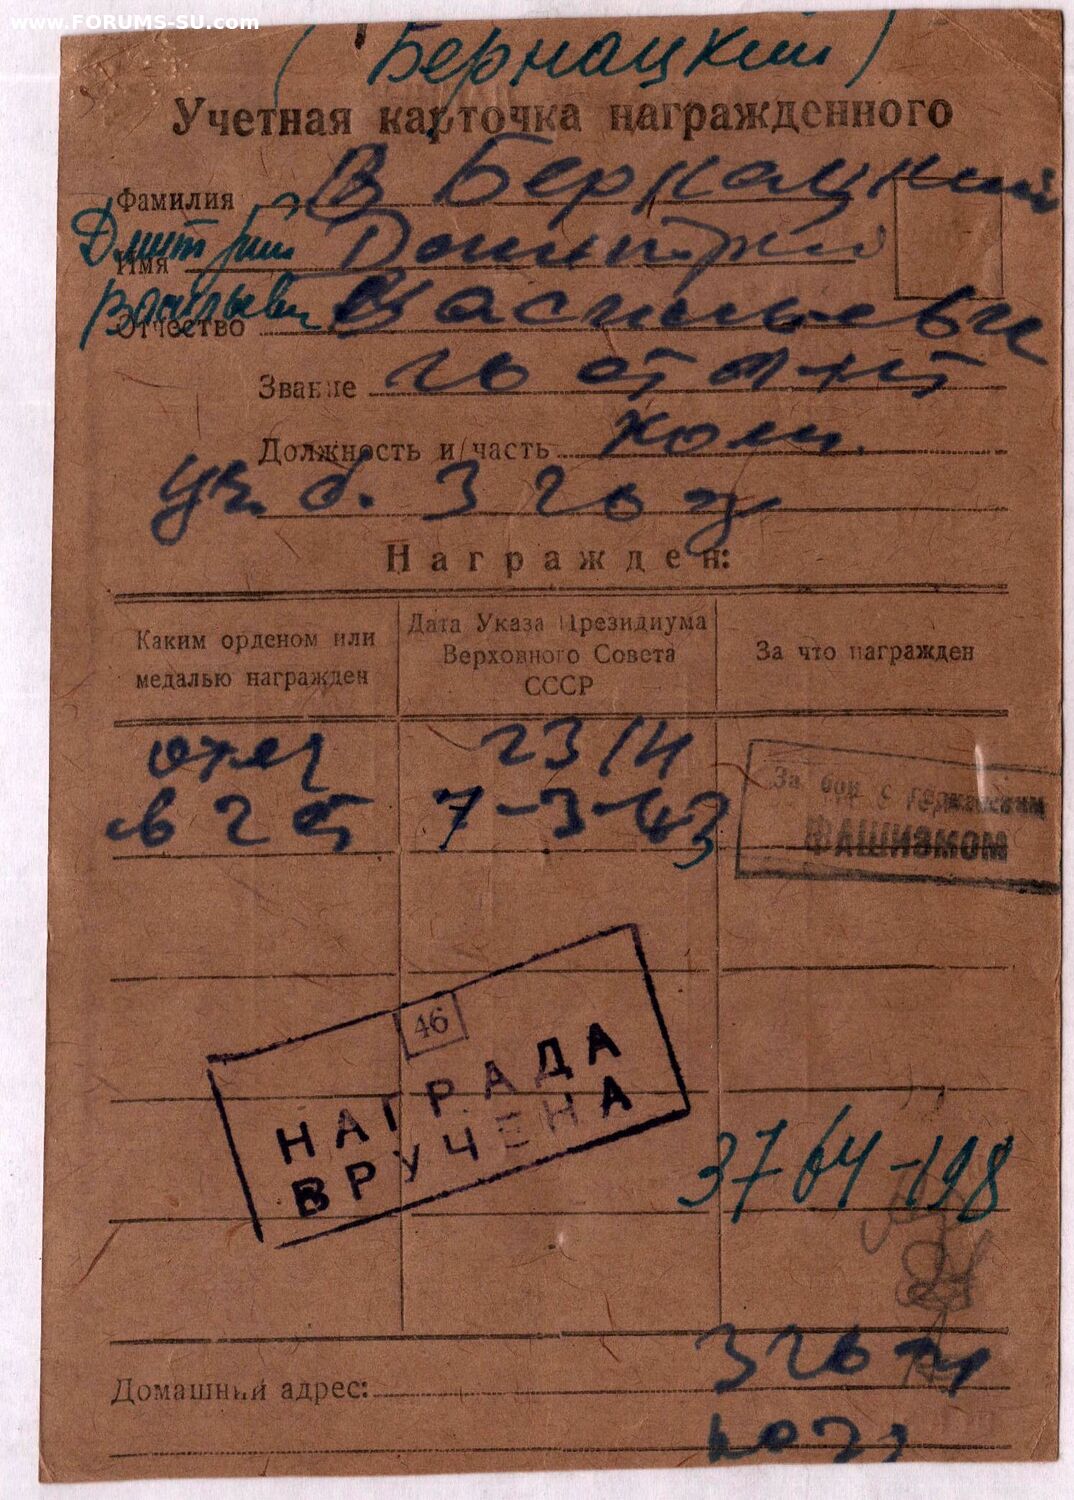 www.FORUMS-SU.com
(Бернацкий)
Учетная карточка награжденного
Фамилия В Бернацкий
Дмитрий
Имя Дмитрий
Васильеви
Отчество Васильеви
Звание гв
Должность и часть Ком.
б. 3 гв
Награжден:
Каким орденом или
медалью награжден
Дата Указа Президиума
Верховного Совета
СССР
За что награжден
отеч
в 2 ст
23/н
7-3-43
За бои с германским
ФАШИЗМОМ
46
НАГРАДА
ВРУЧЕНА
3764-198
3 гв
Домашний адрес: